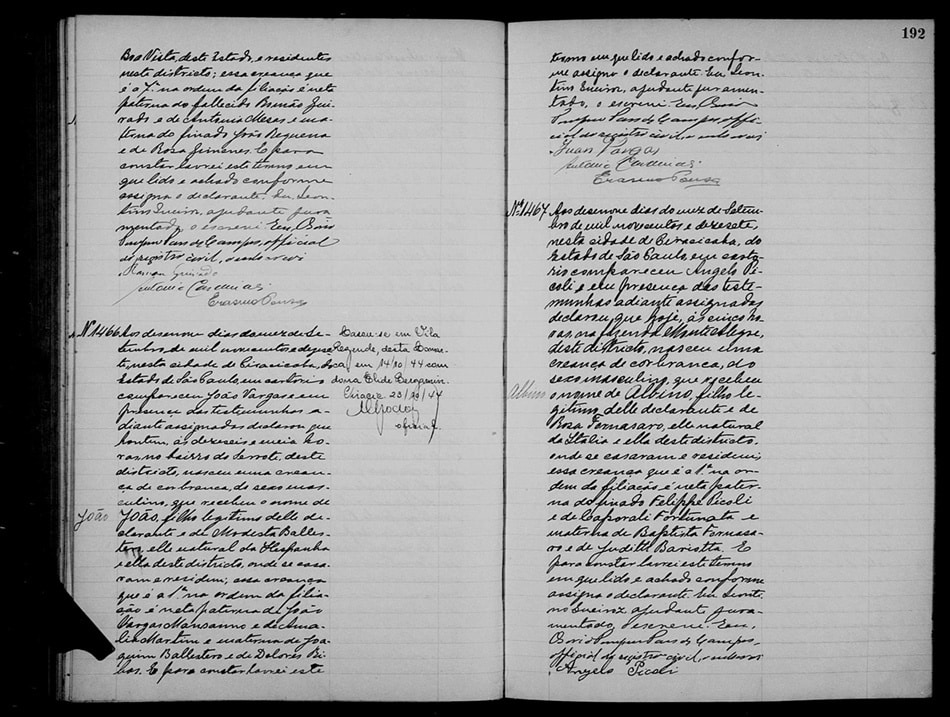 Boa Vista, deste Estado, e residentes
neste districto; essa creança que
é o 7º na ordem da filiação é neta
paterna do fallecido Guirado
e de Antonia e ma-
terna do finado João Requena
e de Rosa Gimenes. E para
constar lavrei este termo em
que lido e achado conforme
assigna o declarante. Eu, Leon-
tino ajudante jura-
mentado, o escrevi. Eu,
de Campos, official
do registro civil,
Guirado
Antonio Cardenas
Erasmo
Nº 1466 Aos desenove dias do mez de Se-
tembro, de mil novecentos e deze-
te, nesta cidade de Piracicaba, do
Estado de São Paulo, em cartorio
compareceu João Vargas e em
presença das testemunhas a-
diante assignadas declarou que
hontem, ás dezeseis e meia ho-
ras no bairro do Serrote, deste
districto, nasceu uma crean-
ça de cor branca, do sexo mas-
culino, que recebeu o nome de
João
João, filho legitimo delle de-
clarante e de Modesta Balles-
tero, elle natural da Hespanha
e ella deste districto, onde se casa-
ram e residem; essa creança
que é a 1ª na ordem da filia-
ção é neta paterna de João
Vargas Mansanno e de Ama-
lia Martins e materna de Joa-
quim Ballestero e de Dolores Ri-
bas. E para constar lavrei este
Casou-se em Vila
Rezende, desta Comar-
ca, em 14/10/44 com
dona Elide
23/10/44
oficial
192
termo em que lido e achado confor-
me assigna o declarante. Eu, Leon-
tino ajudante juramen-
tado, o escrevi. Eu,
de Campos, offi-
cial do registro civil
Juan Vargas
Antonio Cardenas
Erasmo
Nº 1467 Aos desenove dias do mez de Setem-
bro de mil novecentos e dezesete,
nesta cidade de Piracicaba, do
Estado de São Paulo, em carto-
rio compareceu Angelo Pi-
coli e em presença das teste-
munhas adiante assignadas
declarou que hoje, ás cinco ho-
ras, na fazenda Monte Alegre,
deste districto, nasceu uma
creança de cor branca, do
sexo masculino, que recebeu
Albino
o nome de Albino, filho le-
gitimo delle declarante e de
Rosa Fornasaro, elle natural
de Italia e ella deste districto,
onde se casaram e residem;
essa creança que é a 1ª na or-
dem da filiação, é neta pater-
na do finado Felippe Picoli
e de Casporali Fortunata e
materna de Baptista Fornasa-
ro e de Judith Bariotta. E
para constar lavrei este termo
em que lido e achado conforme
assigna o declarante. Eu Leonti-
no ajudante jura-
mentado, o escrevi. Eu,
de Campos,
official do registro civil
Angelo Picoli